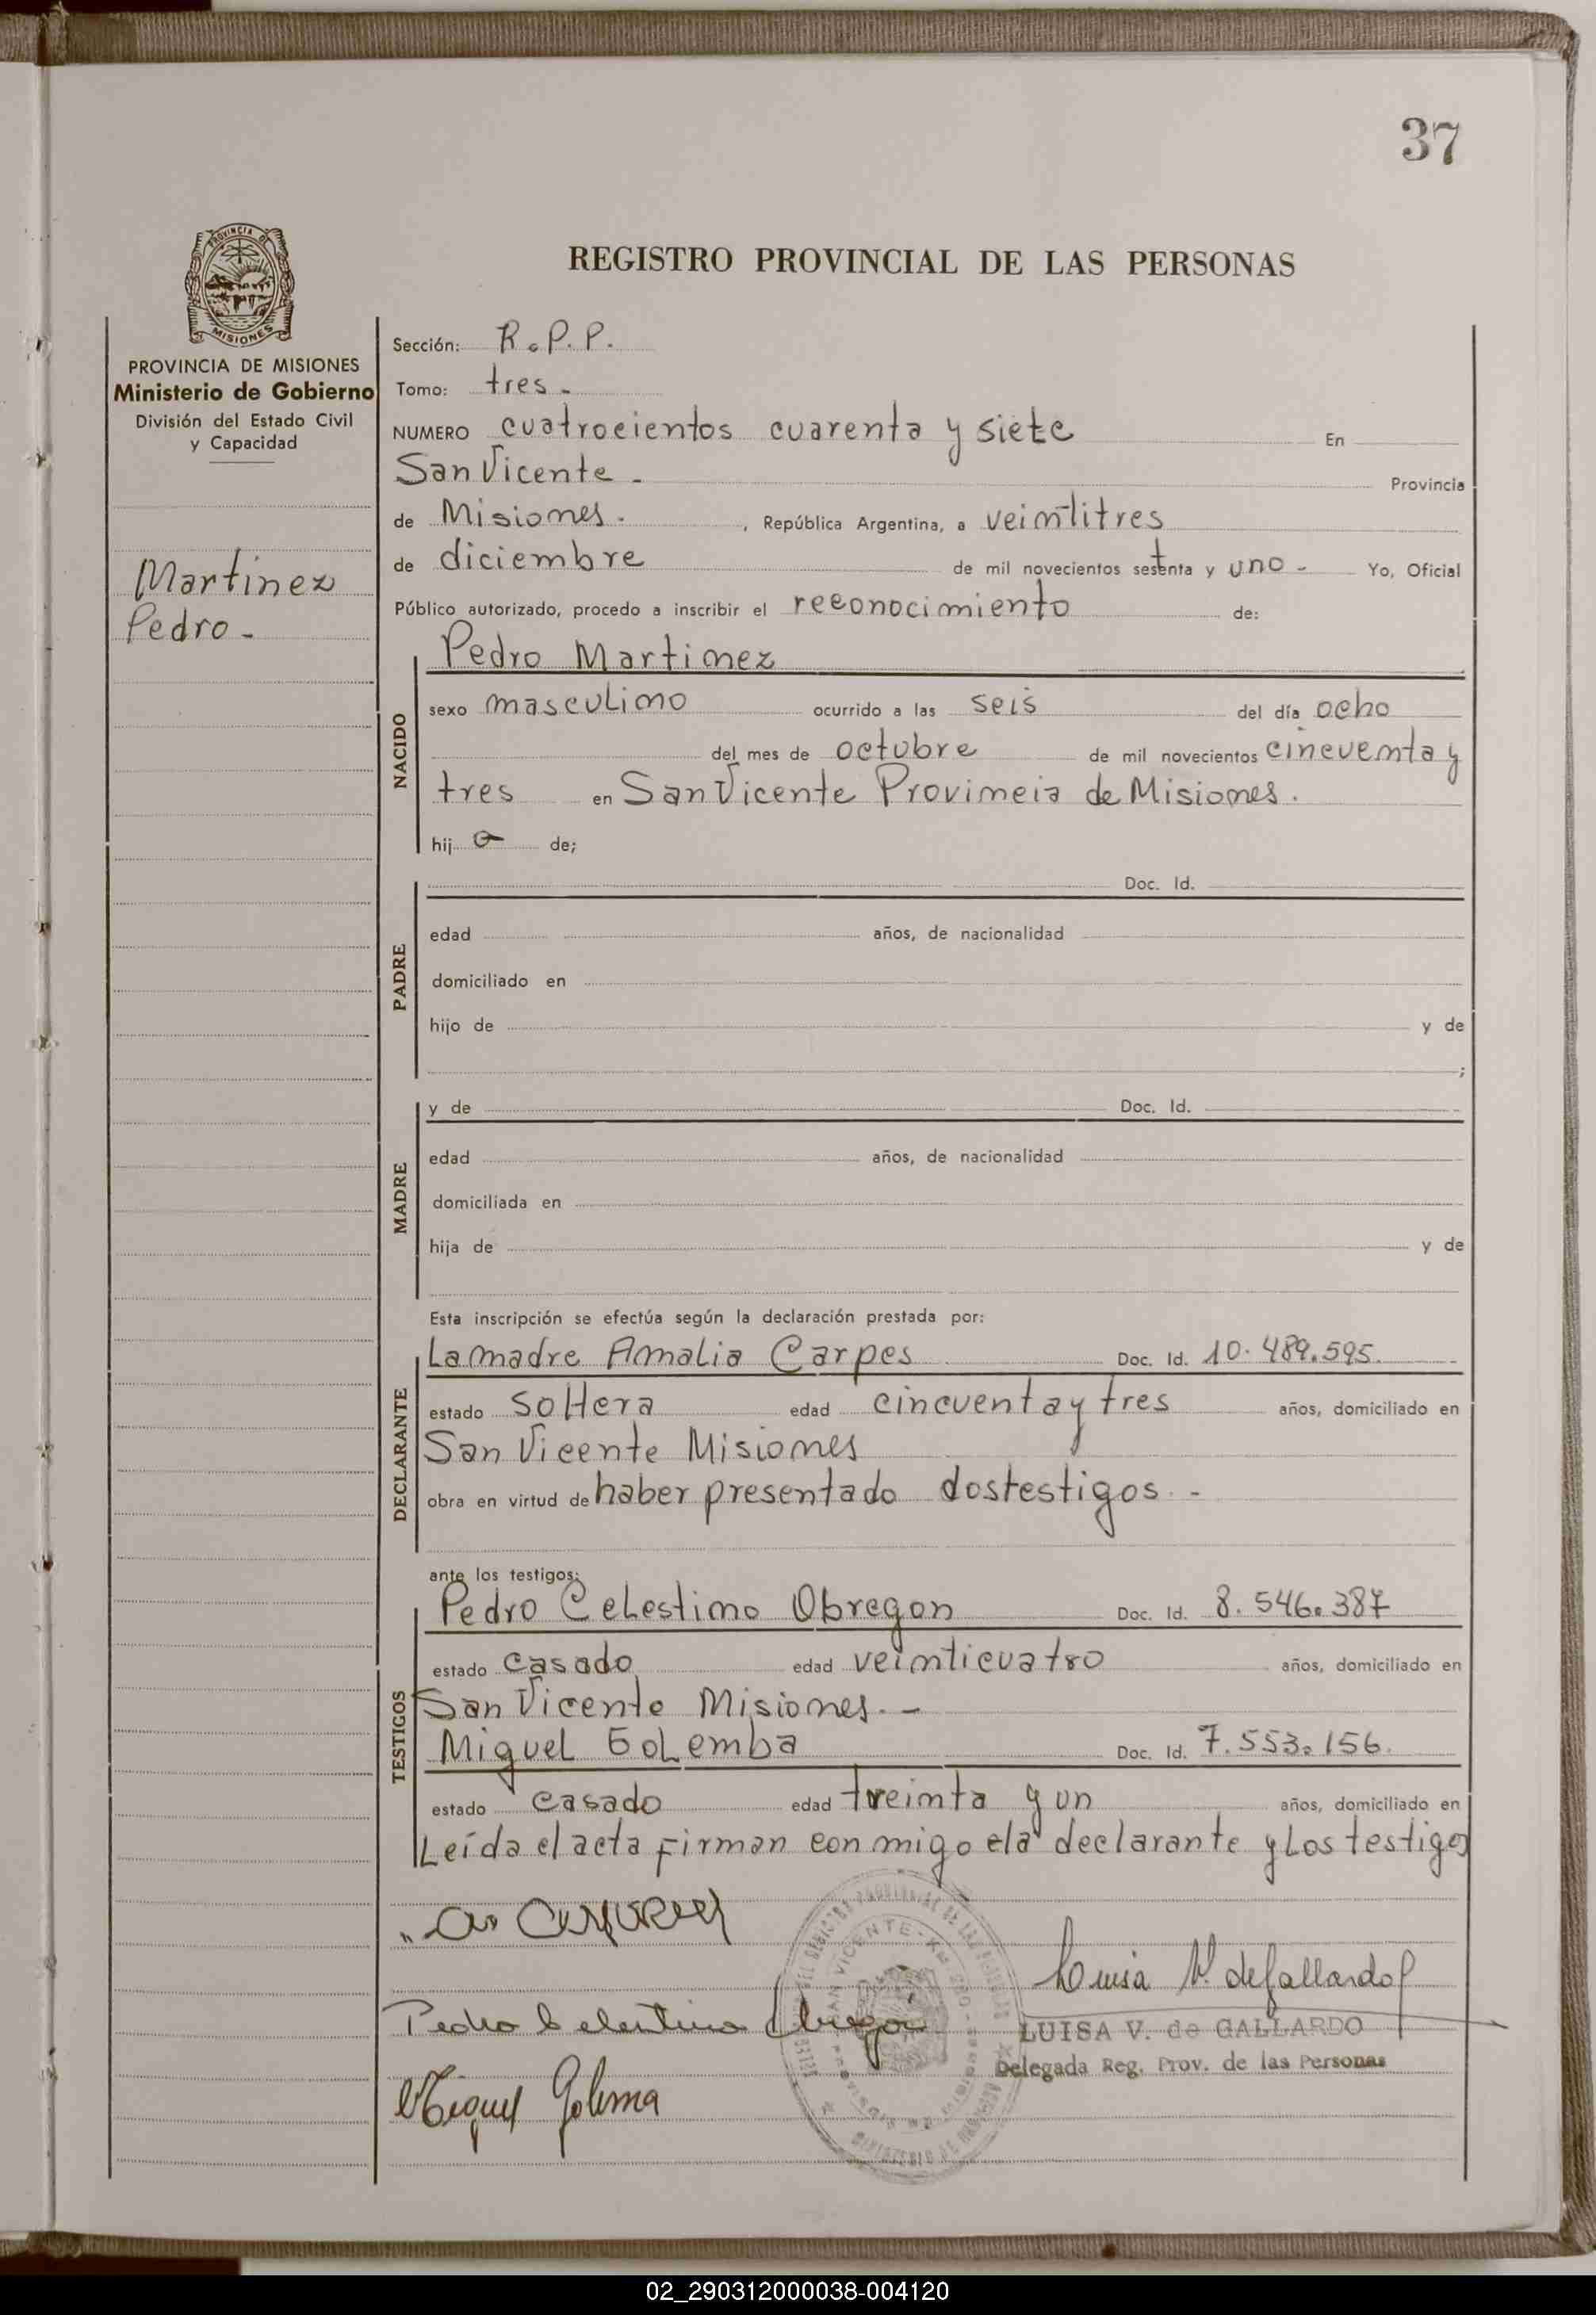 37
PROVINCIA DE
MISIONES
REGISTRO PROVINCIAL DE LAS PERSONAS
PROVINCIA DE MISIONES
Ministerio de Gobierno
División del Estado Civil
y Capacidad
Martinez
Pedro -
Sección: R.P.P.
Tomo: tres -
NUMERO cuatrocientos cuarenta y siete En
San Vicente - Provincia
de Misiones. , República Argentina, a veintitres
de diciembre de mil novecientos setenta y uno - Yo, Oficial
Público autorizado, procedo a inscribir el reconocimiento de:
NACIDO
Pedro Martinez
sexo masculino ocurrido a las seis del día ocho
del mes de octubre de mil novecientos cincuenta y
tres en San Vicente Provincia de Misiones.
hij o de;
PADRE
Doc. Id.
edad años, de nacionalidad
domiciliado en
hijo de y de
;
MADRE
y de Doc. Id.
edad años, de nacionalidad
domiciliada en
hija de y de
Esta inscripción se efectúa según la declaración prestada por:
DECLARANTE
La madre Amalia Carpes Doc. Id. 10.489.595.
estado soltera edad cincuenta y tres años, domiciliado en
San Vicente Misiones
obra en virtud de haber presentado dos testigos. -
ante los testigos:
TESTIGOS
Pedro Celestino Obregon Doc. Id. 8.546.387
estado casado edad veinticuatro años, domiciliado en
San Vicente Misiones. -
Miguel Golemba Doc. Id. 7.553.156.
estado casado edad treinta y un años, domiciliado en
Leída el acta firman conmigo la declarante y los testigos
Luisa V. de Gallardo
Pedro Celestino Obregon
LUISA V. de GALLARDO
Delegada Reg. Prov. de las Personas
Miguel Golema
02_290312000038-004120